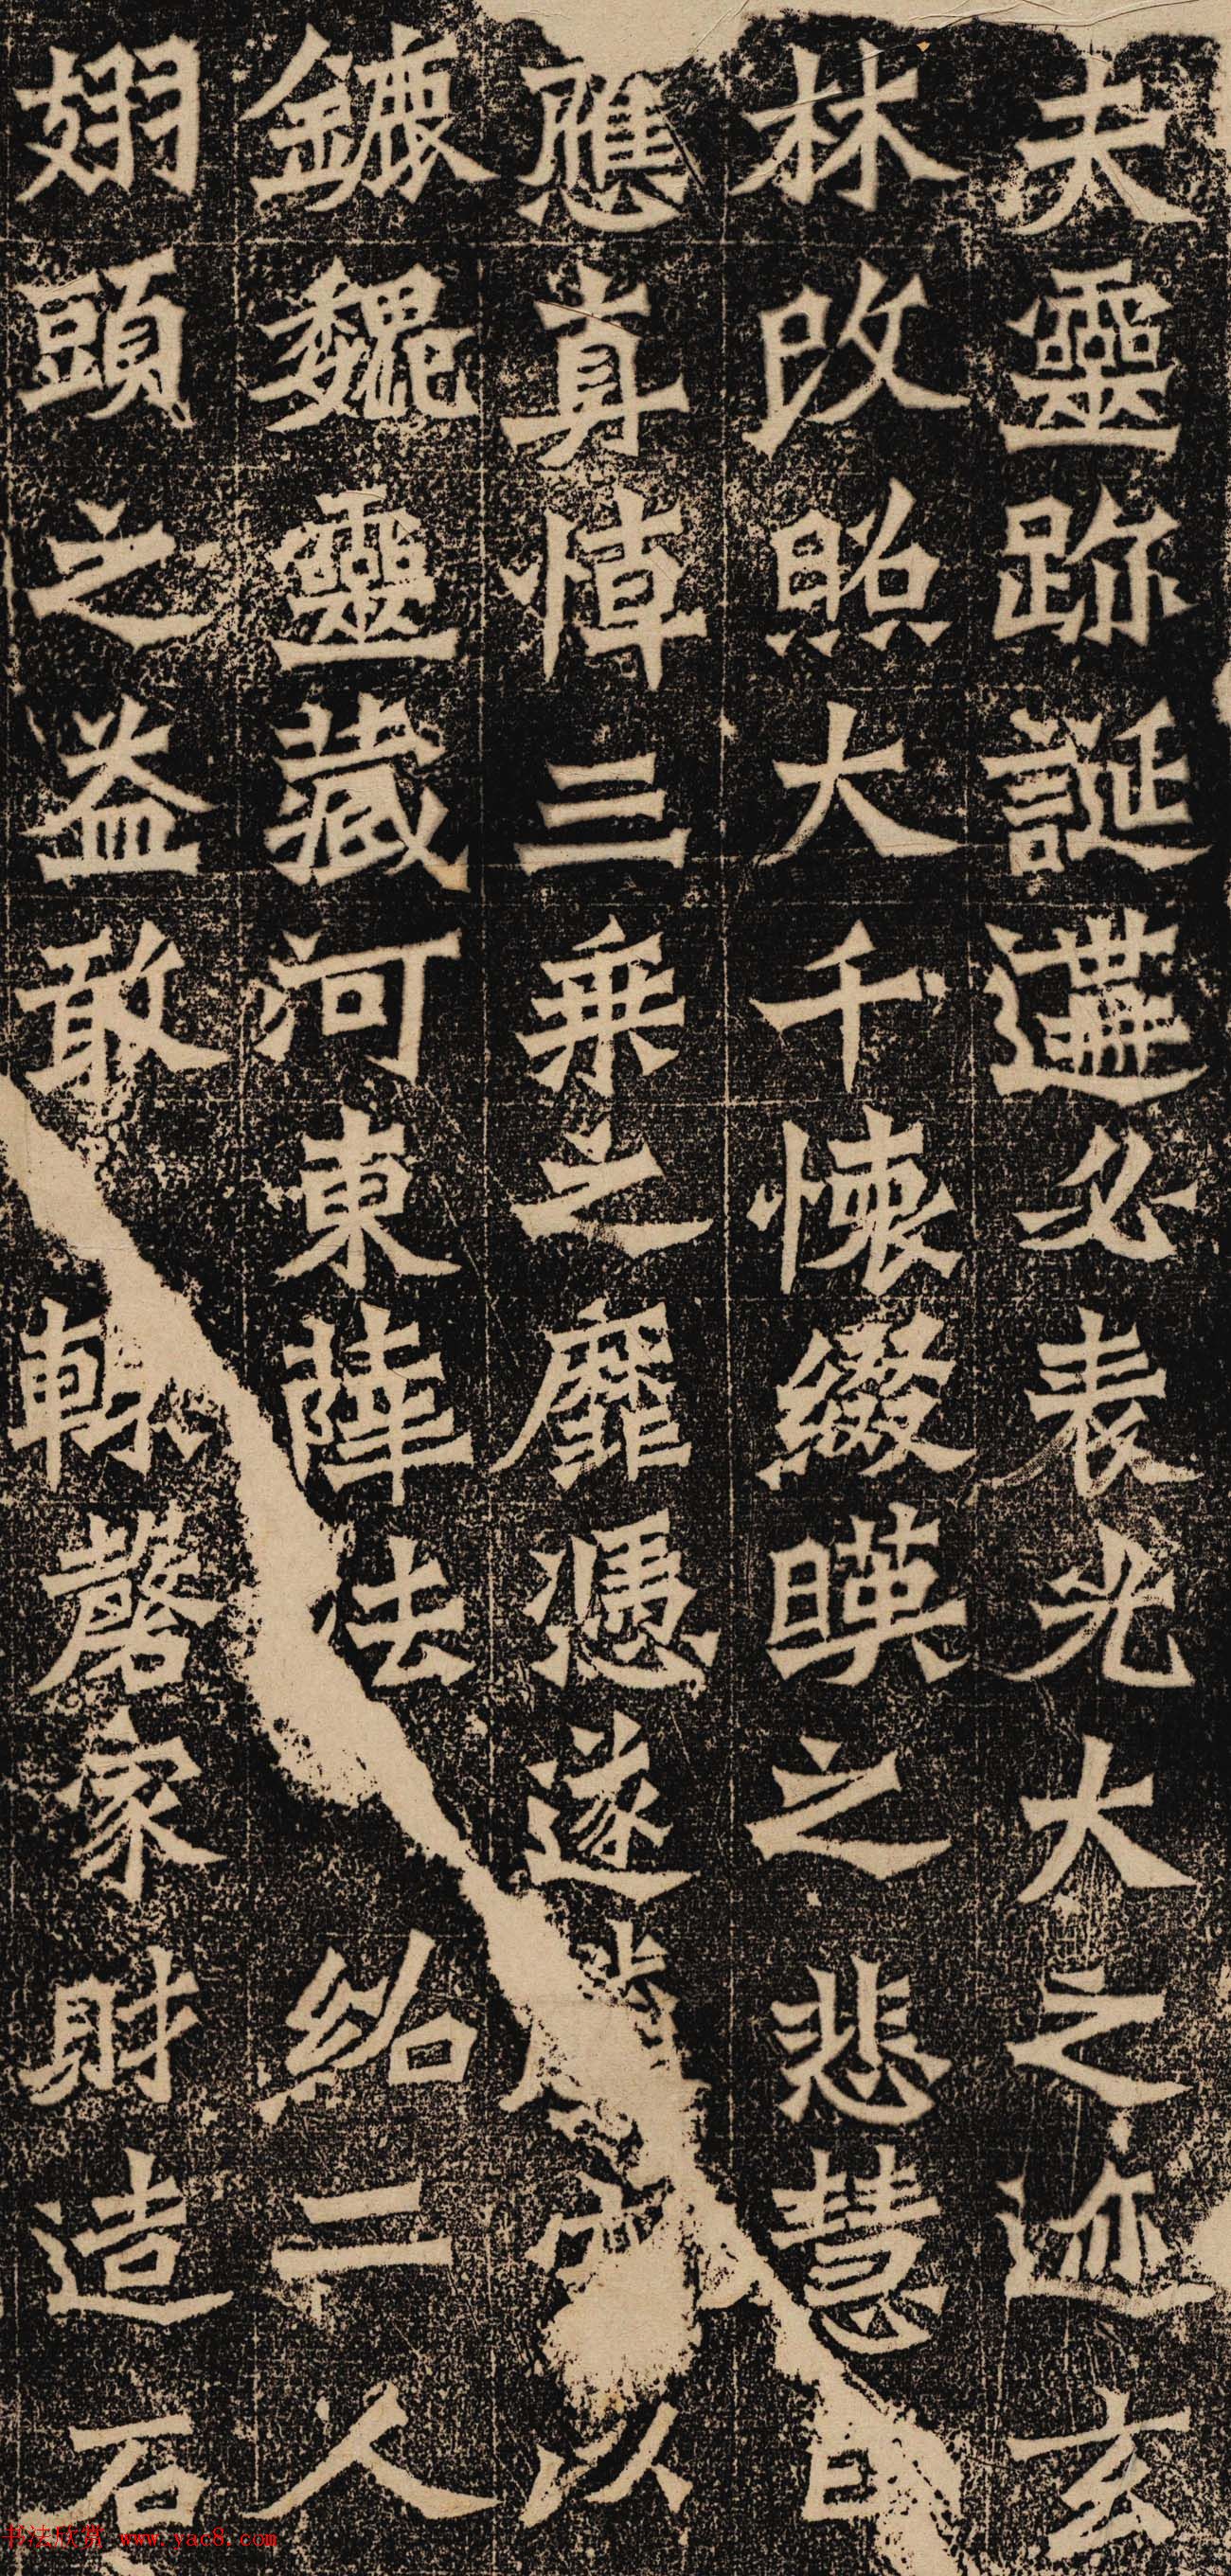 夫靈跡誕遘必表光大之迹玄
林改照大千懷綴暎之悲慧日
應真悼三乘之靡憑遂以
鏕魏靈藏河東薛法紹二人
翅頭之益敢輒磬家財造石
书法欣赏 www.yac8.com